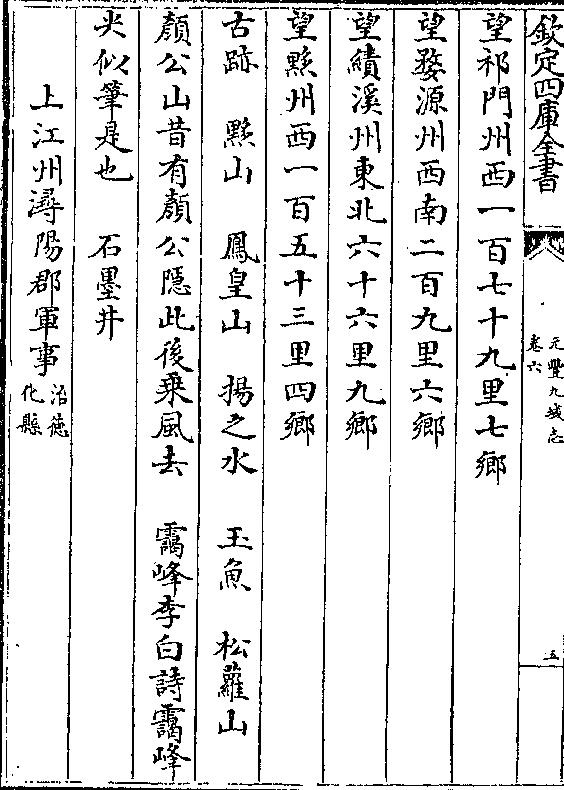 欽定四庫全書
元豐九域志
卷六
五
望祁門州西一百七十九里七鄉
望婺源州西南二百九里六鄉
望績溪州東北六十六里九鄉
望黟州西一百五十三里四鄉
古跡 黟山 鳳皇山 揚之水 玉魚 松蘿山
顏公山昔有顏公隱此後乘風去 靄峰李白詩靄峰
尖似筆是也 石墨井
上江州潯陽郡軍事治德化縣